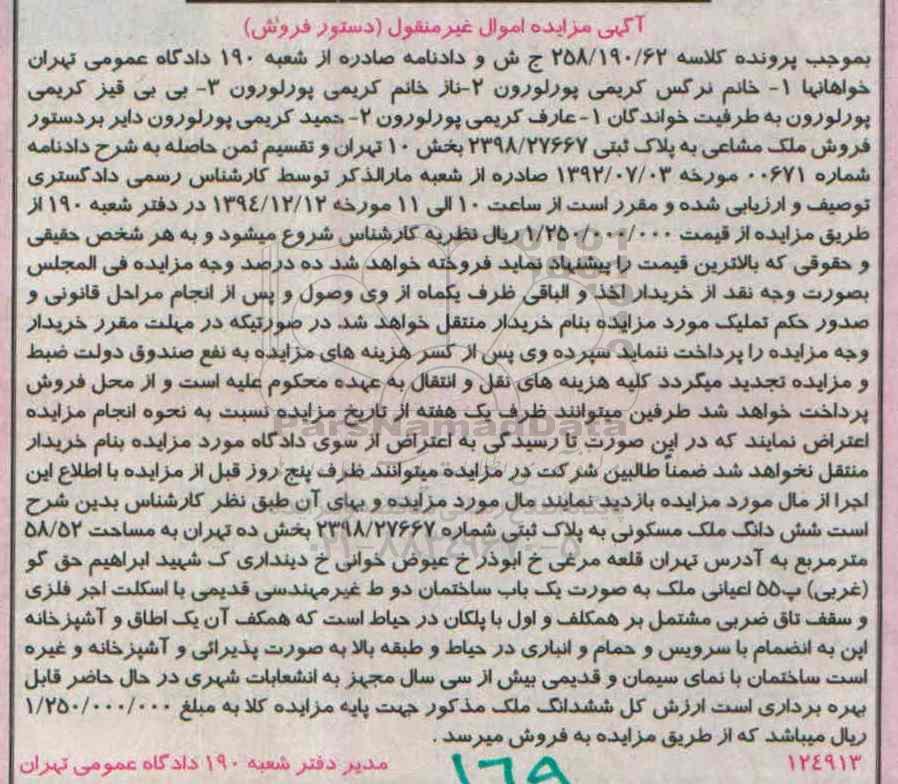 آگهی مزایده اموال غیرمنقول (دستور فروش)
بموجب پرونده کلاسه ۲۵۸/۱۹۰/۶۲ ج ش و دادنامه صادره از شعبه ۱۹۰ دادگاه عمومی تهران
خواهانها ۱- خانم نرگس کریمی پورلورون ۲-ناز خانم کریمی پورلورون ۳- بی بی قیز کریمی
پورلورون به طرفیت خواندگان ۱-عارف کریمی پورلورون ۲-حمید کریمی پورلورون دایر بردستور
فروش ملک مشاعی به پلاک ثبتی ۲۳۹۸/۲۷۶۶۷ بخش ۱۰ تهران و تقسیم ثمن حاصله به شرح دادنامه
شماره ۰۰۶۷۱ مورخه ۱۳۹۲/۰۷/۰۳ صادره از شعبه مارالذکر توسط کارشناس رسمی دادگستری
توصیف و ارزیابی شده و مقرر است از ساعت ۱۰ الی ۱۱ مورخه ۱۳۹٤/۱۲/۱۲ در دفتر شعبه ۱۹۰ از
طریق مزایده از قیمت ۱/۲۵۰/۰۰۰/۰۰۰ ریال نظریه کارشناس شروع میشود و به هر شخص حقیقی
و حقوقی که بالاترین قیمت را پیشنهاد نماید فروخته خواهد شد ده درصد وجه مزایده فی المجلس
بصورت وجه نقد از خریدار اخذ و الباقی ظرف یکماه از وی وصول و پس از انجام مراحل قانونی و
صدور حکم تملیک مورد مزایده بنام خریدار منتقل خواهد شد. در صورتیکه در مهلت مقرر خریدار
وجه مزایده را پرداخت ننماید سپرده وی پس از کسر هزینه های مزایده به نفع صندوق دولت ضبط
و مزایده تجدید میگردد کلیه هزینه های نقل و انتقال به عهده محکوم علیه است و از محل فروش
پرداخت خواهد شد طرفین میتوانند ظرف یک هفته از تاریخ مزایده نسبت به نحوه انجام مزایده
اعتراض نمایند که در این صورت تا رسیدگی به اعتراض از سوی دادگاه مورد مزایده بنام خریدار
منتقل نخواهد شد ضمناً طالبین شرکت در مزایده میتوانند ظرف پنج روز قبل از مزایده با اطلاع این
اجرا از مال مورد مزایده بازدید نمایند مال مورد مزایده و بهای آن طبق نظر کارشناس بدین شرح
است شش دانگ ملک مسکونی به پلاک ثبتی شماره ۲۳۹۸/۲۷۶۶۷ بخش ده تهران به مساحت ۵۸/۵۲
مترمربع به آدرس تهران قلعه مرغی خ ابوذر خ عیوض خوانی خ دینداری ک شهید ابراهیم حق گو
(غربی) پ۵۵ اعیانی ملک به صورت یک باب ساختمان دو ط غیرمهندسی قدیمی با اسکلت اجر فلزی
و سقف تاق ضربی مشتمل بر همکلف و اول با پلکان در حیاط است که همکف آن یک اطاق و آشپزخانه
اپن به انضمام با سرویس و حمام و انباری در حیاط و طبقه بالا به صورت پذیرائی و آشپزخانه و غیره
است ساختمان با نمای سیمان و قدیمی بیش از سی سال مجهز به انشعابات شهری در حال حاضر قابل
بهره برداری است ارزش کل ششدانگ ملک مذکور جهت پایه مزایده کلا به مبلغ ۱/۲۵۰/۰۰۰/۰۰۰
ریال میباشد که از طریق مزایده به فروش میرسد .
۱۲٤۹۱۳ مدیر دفتر شعبه ۱۹۰ دادگاه عمومی تهران
۱۶۹
ParsNamadData